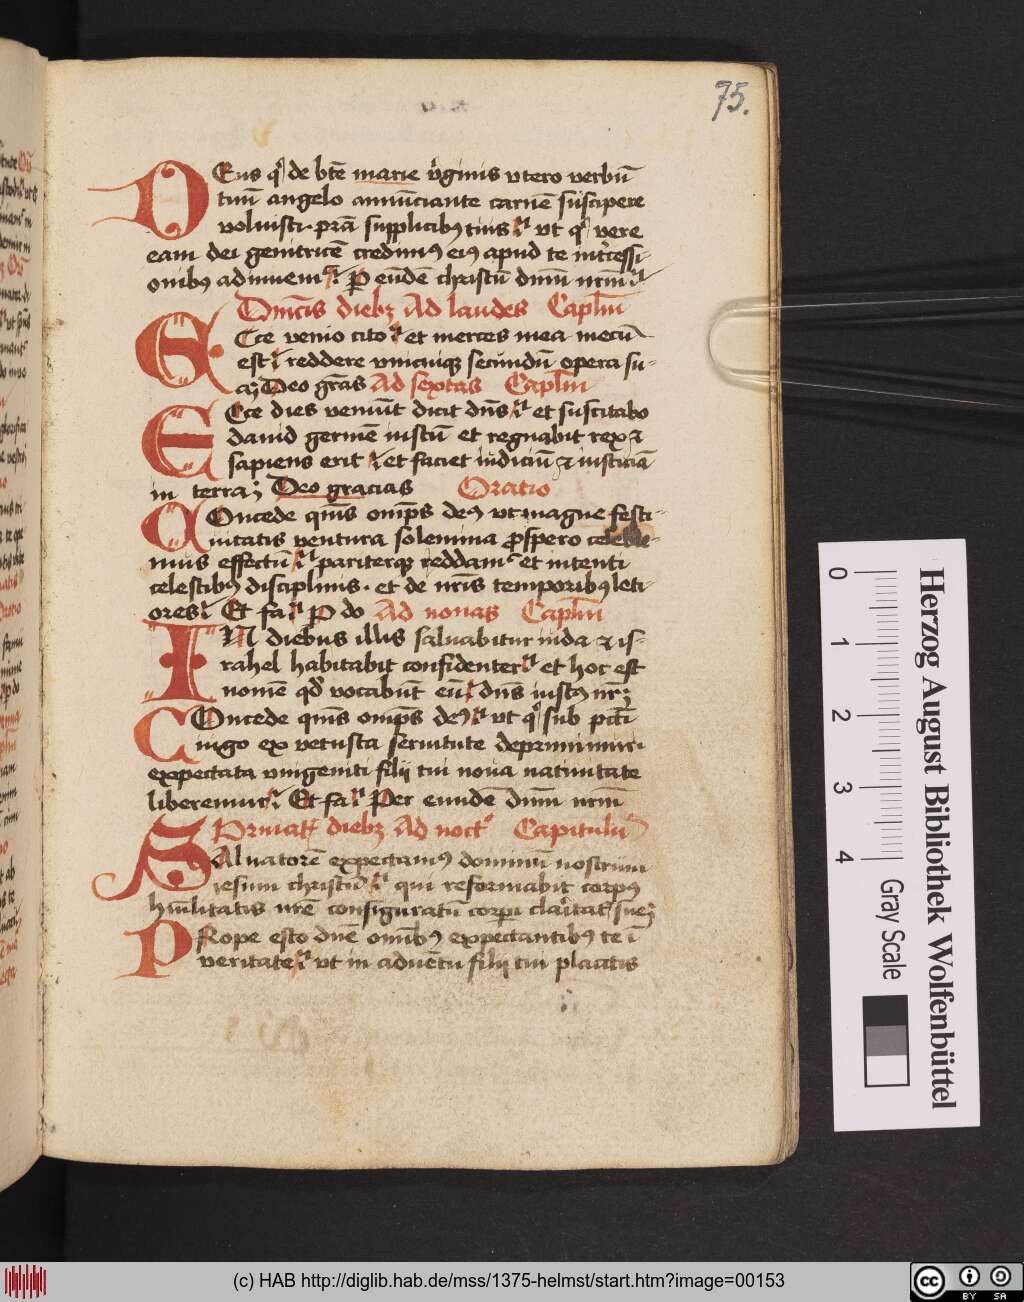 75.
DEus q̊ de bt̄e marie v̊ginis vtero verbū
tuū angelo annūciante carnē suscipere
voluisti. prā supplicibꝫ tuis vt q̊ vere
eam dei genitricē credimꝰ eiꝰ apud te int̄cessi-
onibꝰ adiuuemᷣ. ꝑ eūdē christū dnm̄ nrm̄
Dnīcis diebꝫ Ad laudes Caplm̄
ECce venio cito et merces mea mecū
est reddere vnicuiqꝫ secūndū opera su-
aꝫ Deo grās Ad sextas Caplm̄
ECce dies veniūt dicit dn̄s et suscitabo
dauid germē iustū et regnabit rex ⁊
sapiens erit et faciet iudiciū ⁊ iusticiā
in terraꝫ Deo gracias Oratio
COncede qm̄s omp̄s deꝰ vt magne festi-
uitatis ventura solemnia ꝓspero celebre-
mus effectū pariterqꝫ reddamᷣ et intenti
celestibꝰ disciplinis. et de nr̄is temporibꝰ leti-
ores Et fa ꝑ do Ad nonas Caplm̄
IN diebus illis saluabitur iuda ⁊ is-
rahel habitabit confidenter et hoc est
nomē qd̄ vocabūt eū dn̄s iustꝰ nr̄
COncede qm̄s omp̄s deꝰ vt q̊ sub pcc̄ti
iugo ex vetusta seruitute deprimimur.
expectata vnigeniti filij tui noua natiuitate
liberemur Et fa Per eundē dnm̄ nrm̄
Priuat̄ diebꝫ Ad noct̄ Capitulū
SAluatorē expectamꝰ dominū nostrum
iesum christū qui reformabit corpꝰ
hūilitatis nr̄e configuratū corpī clar̄itat̄ sue
PRope esto dn̄e omībꝰ expectantibꝰ te ī
veritate vt in aduētu filij tui placitis
0 1 2 3 4
Herzog August Bibliothek Wolfenbüttel
Gray Scale
(c) HAB http://diglib.hab.de/mss/1375-helmst/start.htm?image=00153
cc BY SA